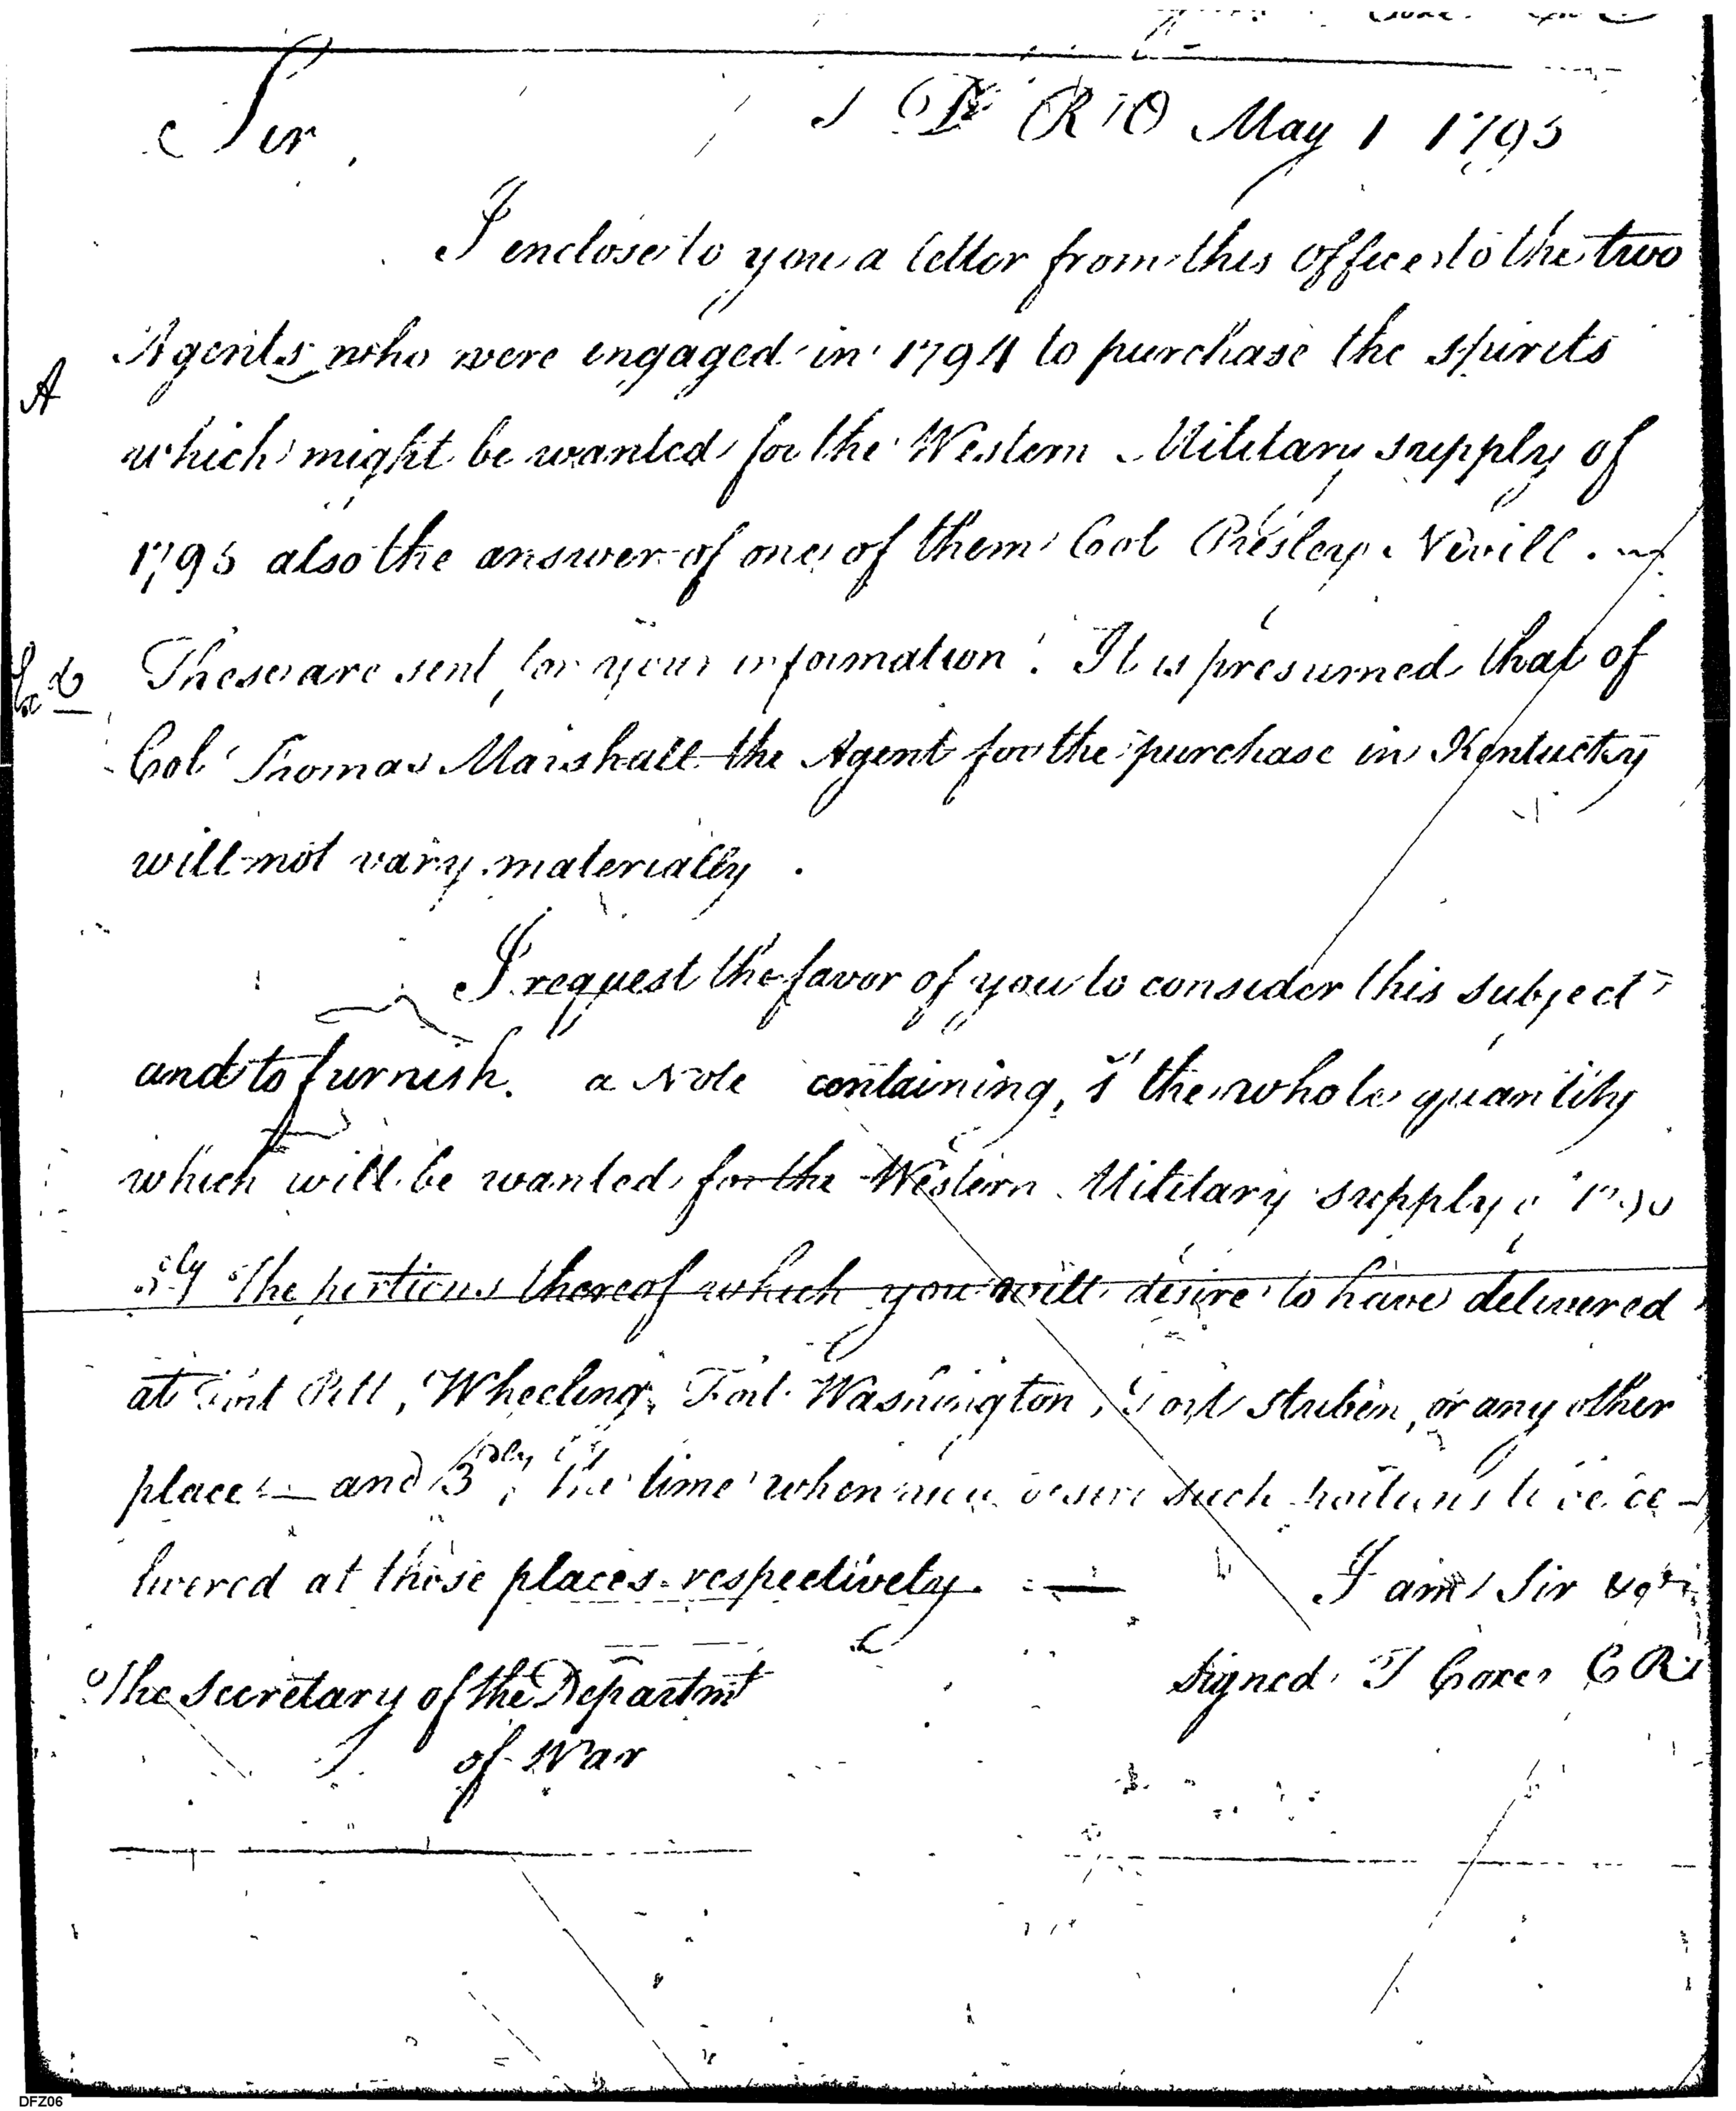 Sir, R O May 1 1795
I enclose to you a letter from this office to the two
Agents who were engaged in 1794 to purchase the spirits
A
which might be wanted for the Western Military supply of
1795 also the answer of one of them Col Presley Nevill .
These are sent for your information . It is presumed that of
Col Thomas Marshall the Agent for the purchase in Kentucky
will not vary materially .
I request the favor of you to consider this subject
and to furnish a Note containing, 1st the whole quantity
which will be wanted for the Western Military supply
2ly The portions thereof which you will desire to have delivered
at Fort Pitt, Wheeling, Fort Washington, Fort Stuben, or any other
place — and 3dly, the time when you desire such portions to be de-
livered at those places respectively. — I am Sir
signed T Coxe C R
The Secretary of the Departmt
of War
DFZ06